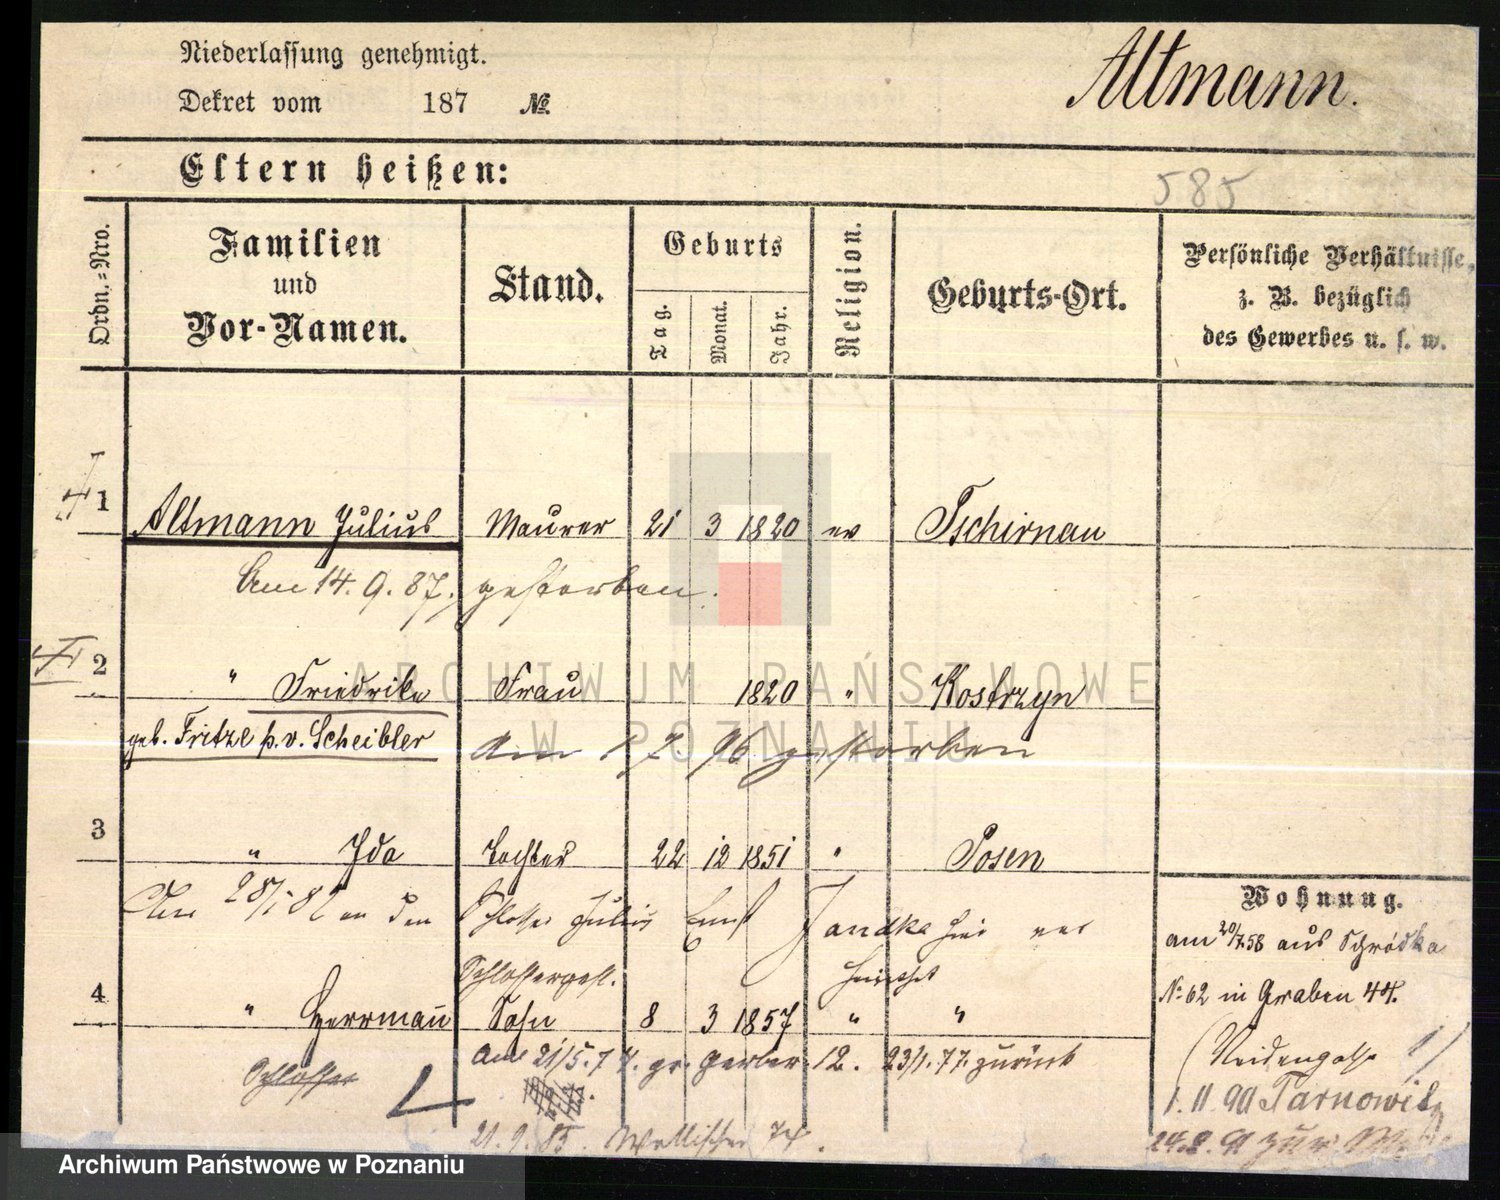 Niederlassung genehmigt.
Dekret vom 187 №
Altmann.
Eltern heißen:
585
Ordn.=Nro.
Familien und Vor-Namen.
Stand.
Geburts
Tag. Monat. Jahr.
Religion.
Geburts-Ort.
Persönliche Verhältnisse,
z. B. bezüglich
des Gewerbes u. s. w.
1 Altmann Julius Maurer 21 3 1820 ev Tschirnau
Am 14. 9. 87. gestorben.
2 " Friedrike Frau 1820 " Kostrzyn
geb. Fritze p.v. Scheibler
am 1 7. 96 gestorben
3 " Ida Tochter 22 12 1851 " Posen
Am 28/ 82 an den Schlosser Julius Ernst Jandke hier ver
heirathet
Schlosserges.
4 " Herrmann Sohn 8 3 1857 " "
Schlosser
am 21/5. 7 gr. Gerber. 12. 23/1. 77. zurück
21. 9. 85.
Wohnung.
am 20/7.58 aus Schrodka
№ 62 in Graben 44.
1. 11. 90 Tarnowitz
24.2.91 zur
ARCHIWUM PAŃSTWOWE
W POZNANIU
Archiwum Państwowe w Poznaniu